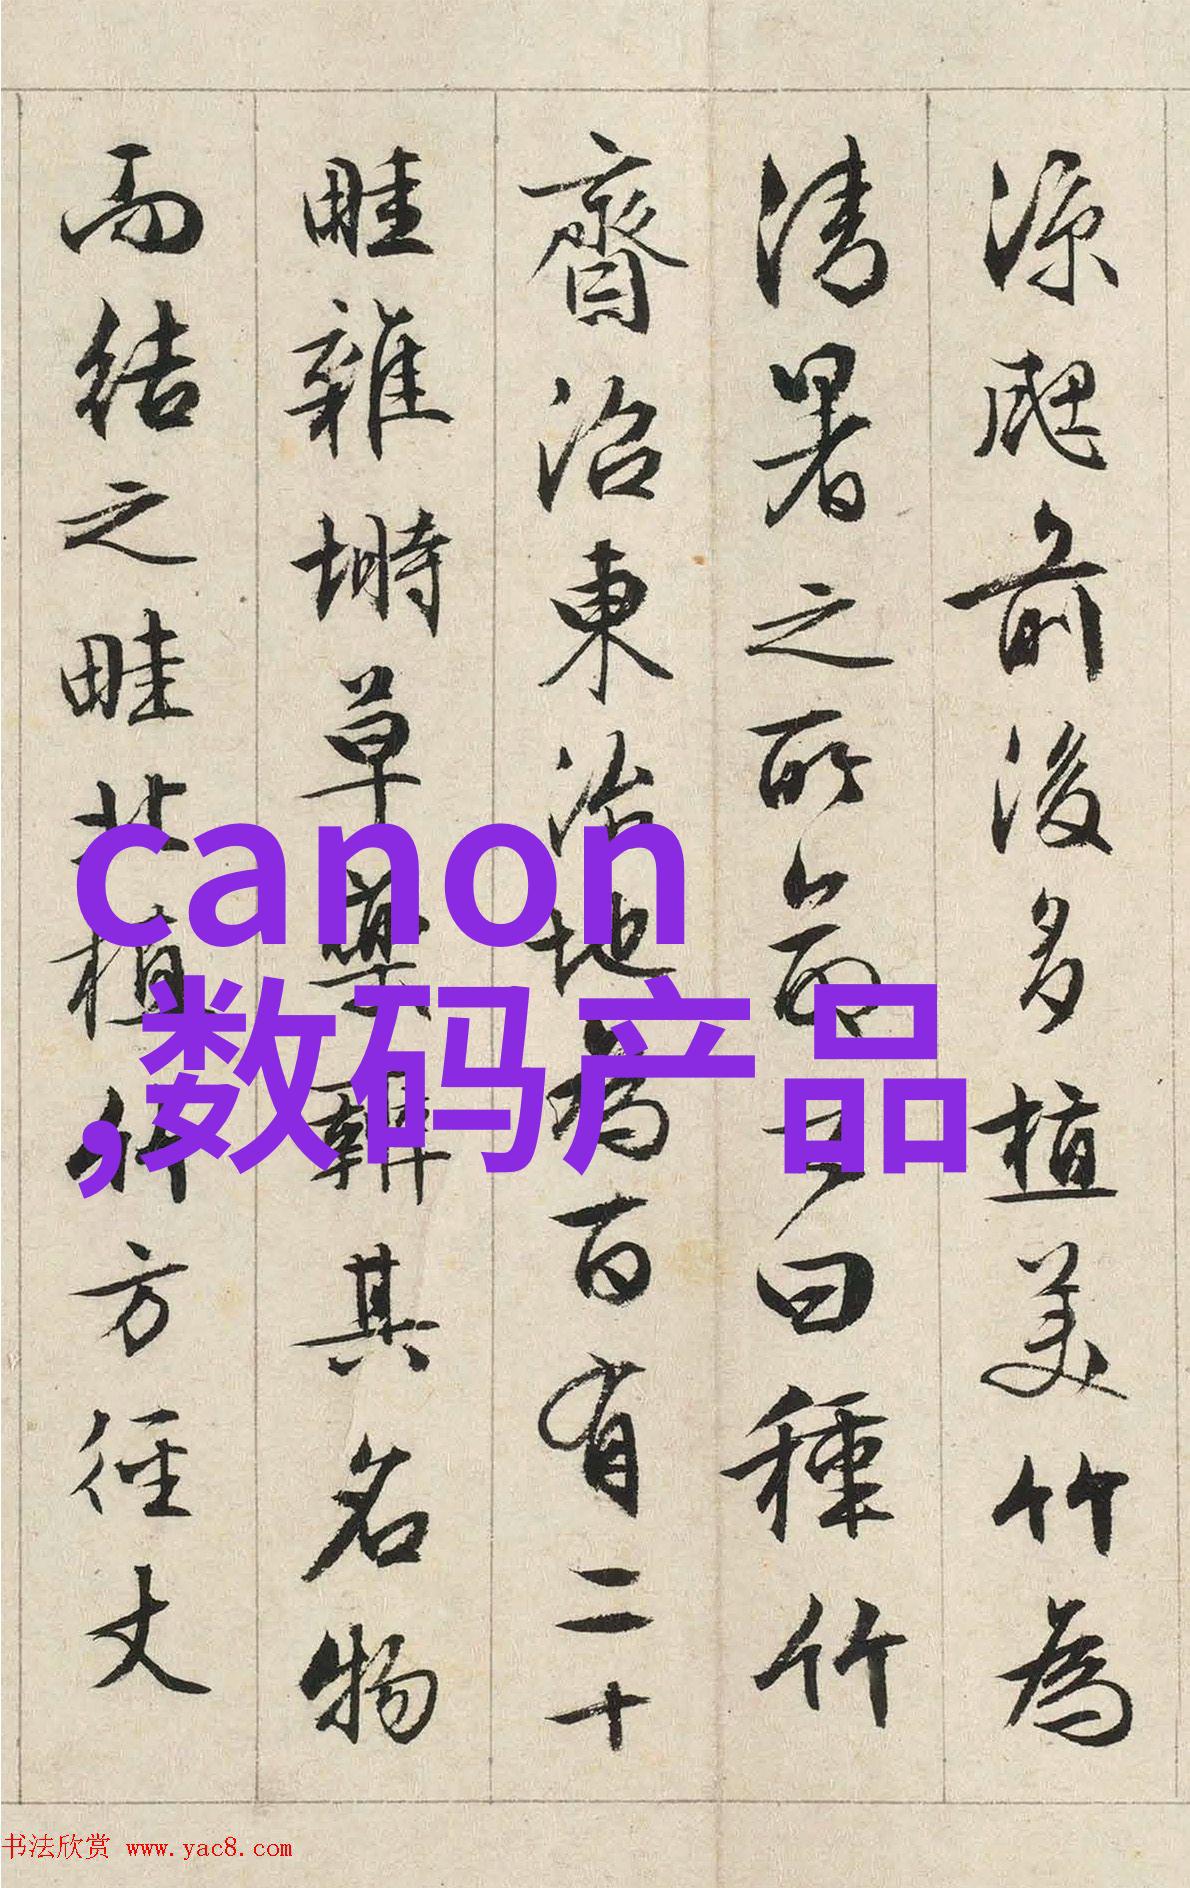 涼颸前後多植美竹為
清暑之所命之曰種竹
齋沼東治地為百有二十
畦雜塒草藥辯其名物
而結之畦北植竹方徑丈
canon
,数码产品
书法欣赏 www.yac8.com